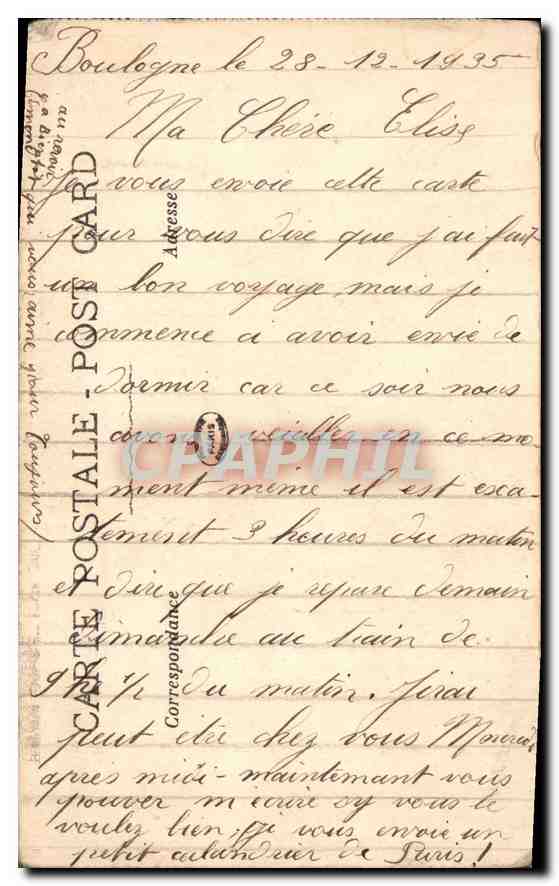 Boulogne le 28-12-1935
Ma Chère Elise
Je vous envoie cette carte
pour vous dire que j'ai fait
un bon voyage, mais je
commence a avoir envie de
dormir car ce soir nous
avons veiller en ce mo-
ment même il est exa-
tement 3 heures du matin
et dire que je repare demain
dimanche au train de
9h 1/2 du matin. Jirai
peut être chez vous Mercredi
après midi - maintenant vous
pouver m'écrire sy vous le
voulez bien, je vous envoie un
petit calandrier de Paris!
au revoir
à bientôt
qui vous aime pour toujours
CARTE POSTALE - POST CARD
Correspondance
Adresse
CPAPHIL
PARIS